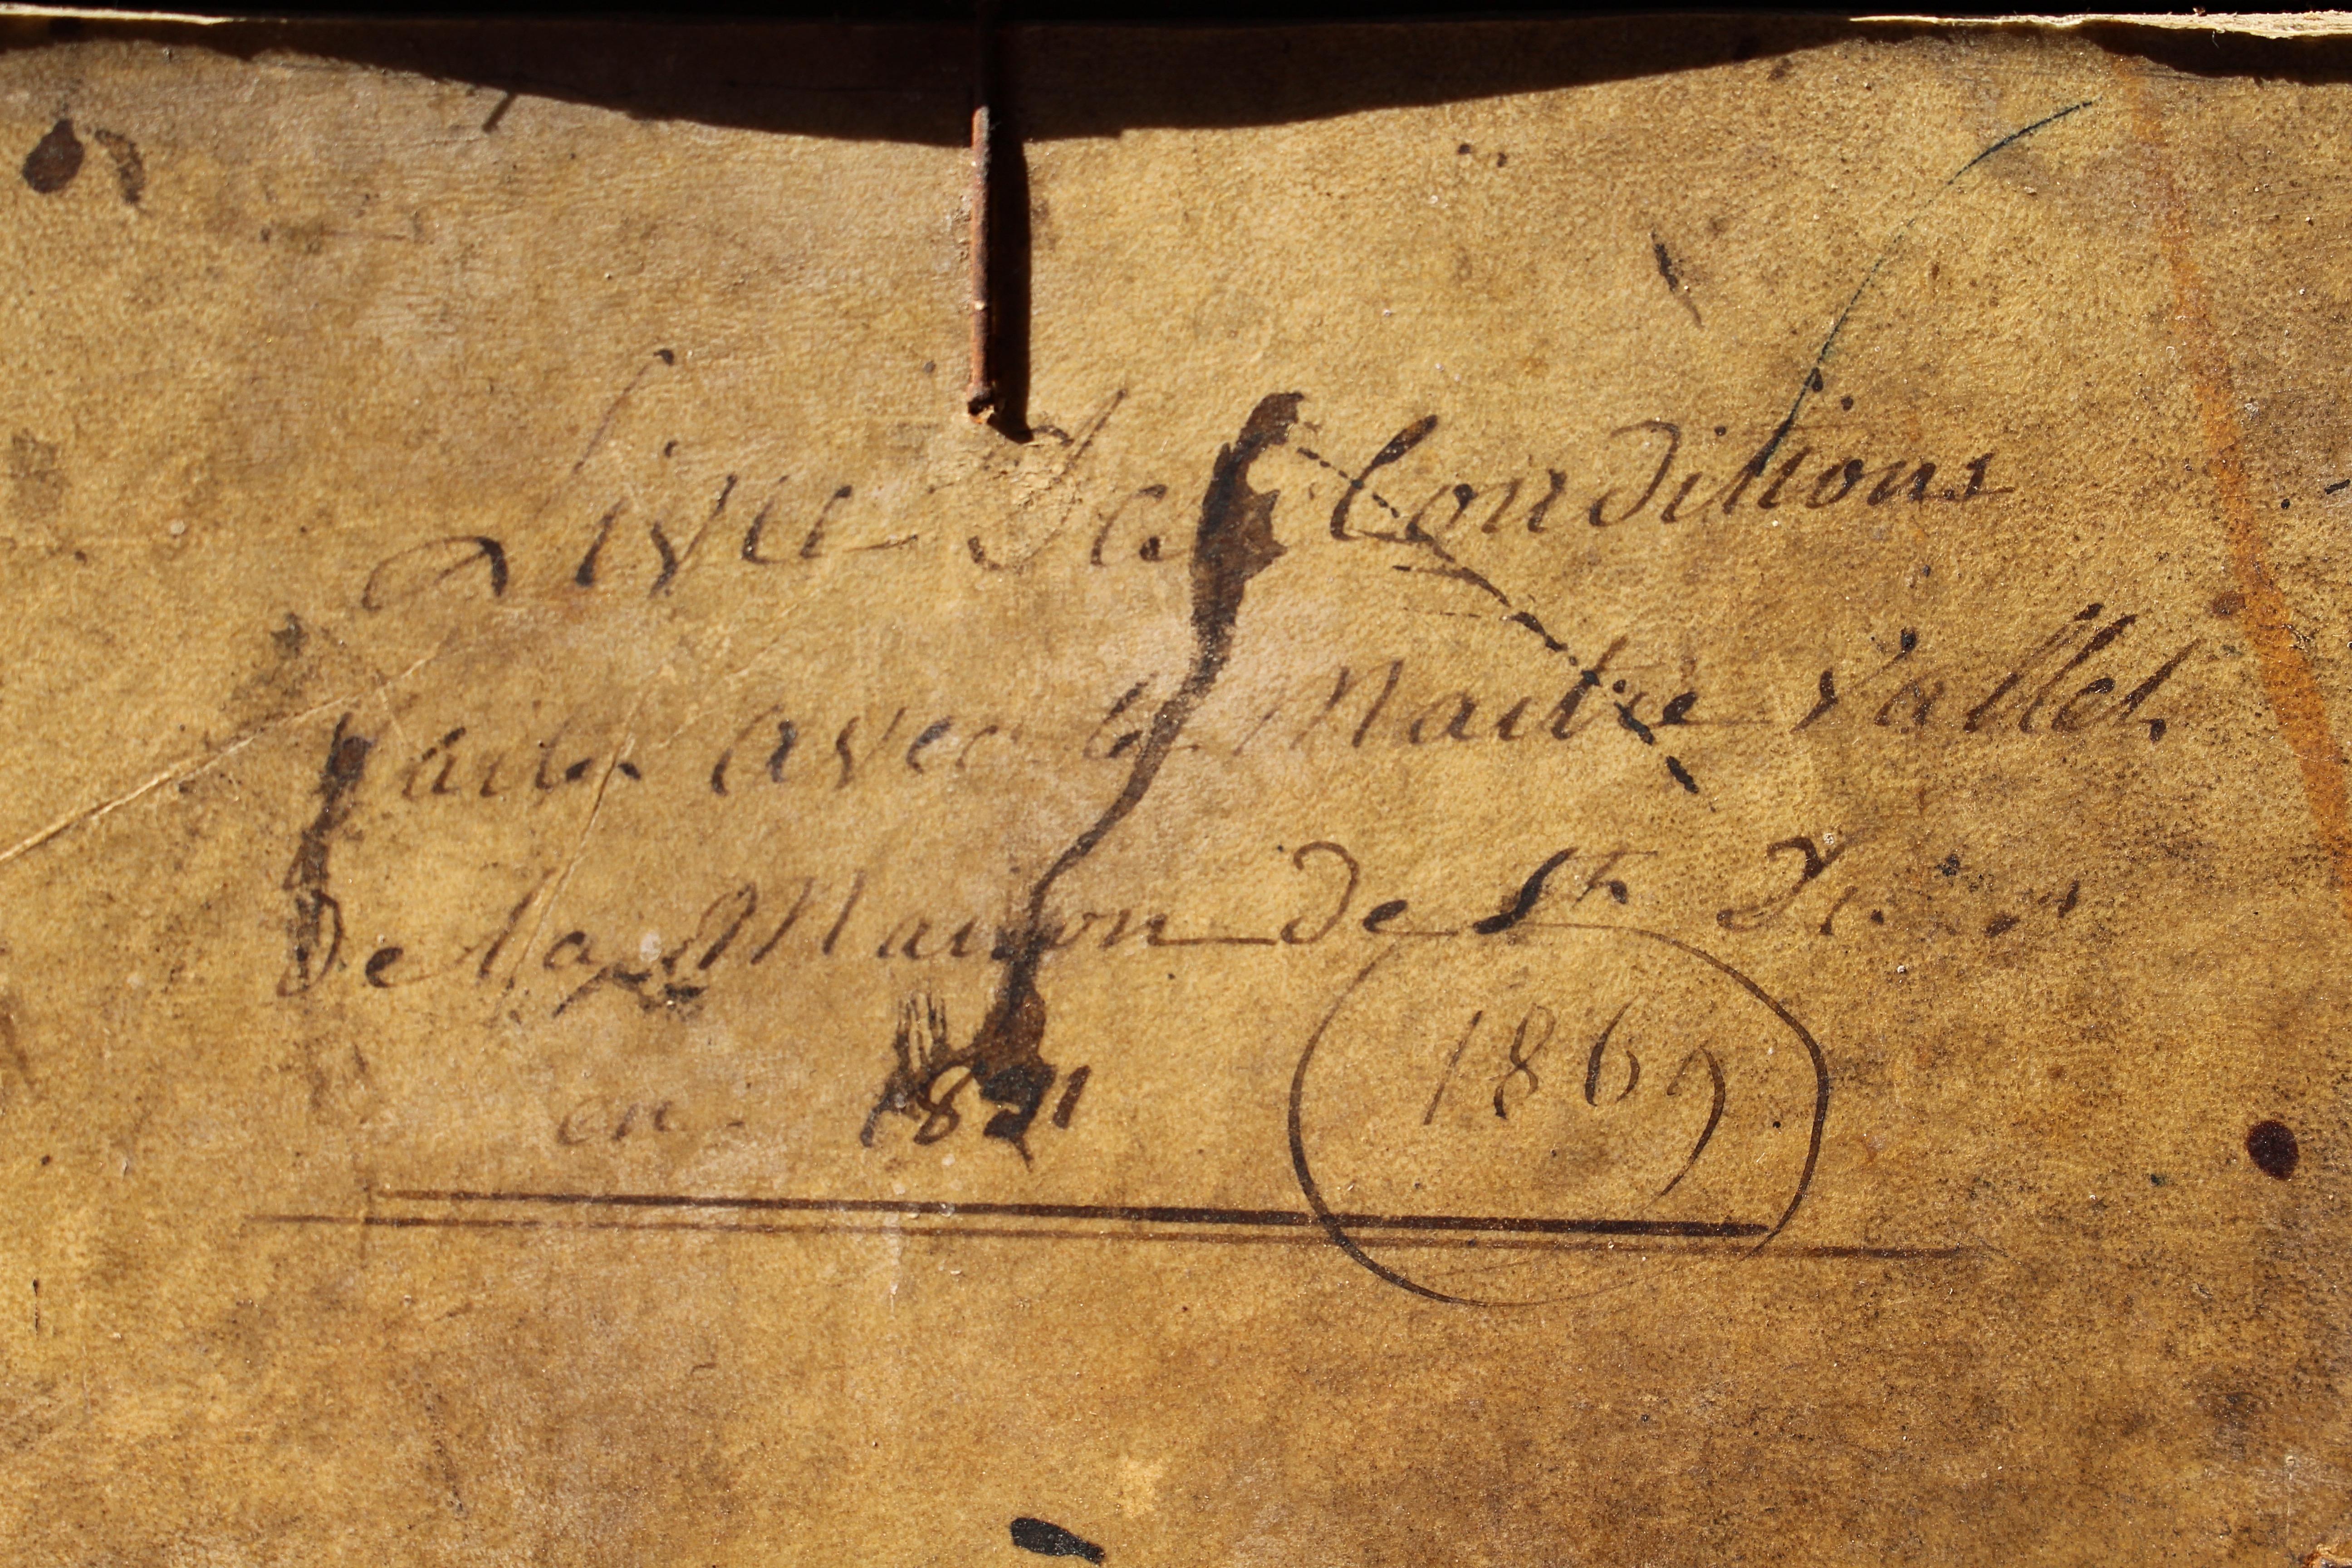 Livre Des Conditions
faites avec le Maitre Vallet
De la Maison de St
en 1821
1869